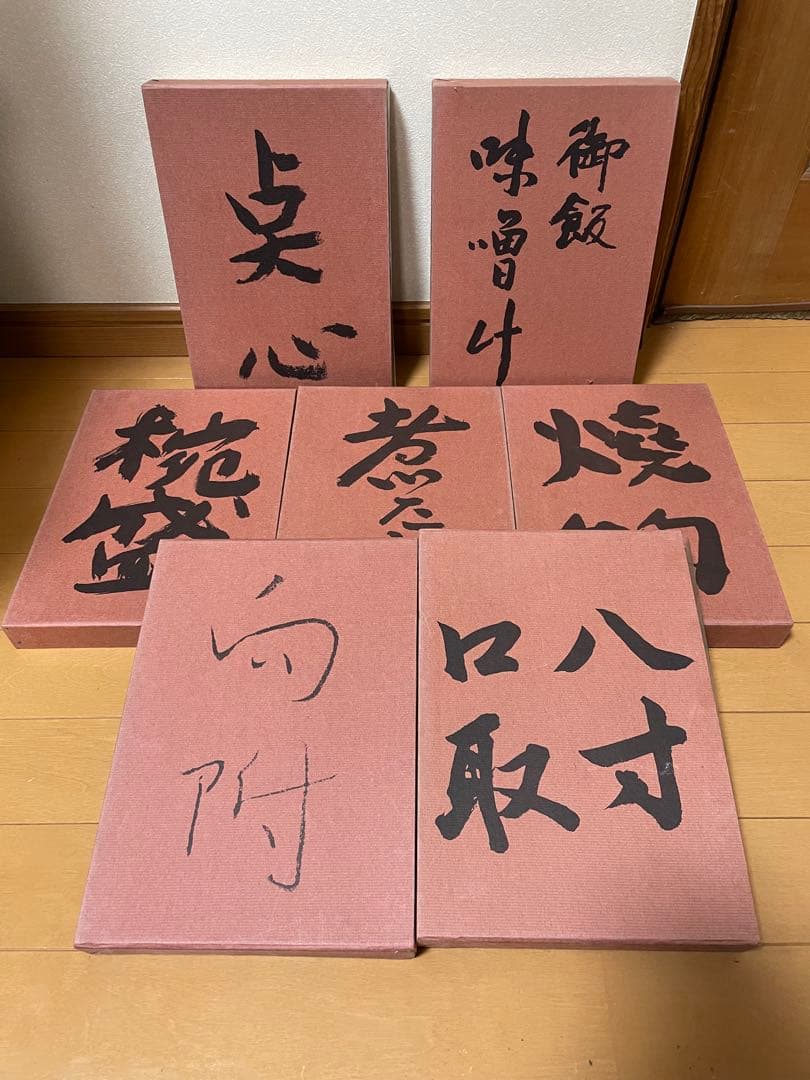 点心
御飯
味噌汁
椀盛
煮
焼物
向附
八寸
口取